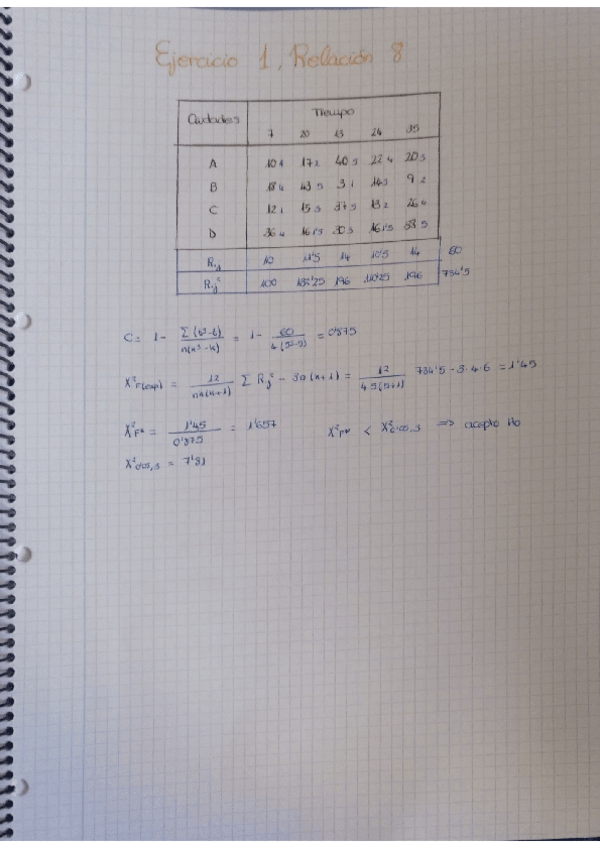 Ejercicio 1, Relación 8
Ciudades Tiempo
7 20 13 24 35
A 10 1 17 2 40 5 22 4 20 3
B 18 4 43 5 3 1 14 3 9 2
C 12 1 15 3 37 5 13 2 26 4
D 36 4 16 1'5 30 3 16 1'5 38 5
R.j 10 11'5 14 10'5 14 60
R.j² 100 132'25 196 110'25 196 734'5
C = 1 - = 1 - = 0'875
X²F(exp) = 12 / nk(k+1) Σ R.j² - 3n(k+1) = 12 / 4·5(5+1) 734'5 - 3·4·6 = 1'45
X²F* = 1'45 / 0'875 = 1'657 X²F* < ⇒ acepto Ho
= 7'81